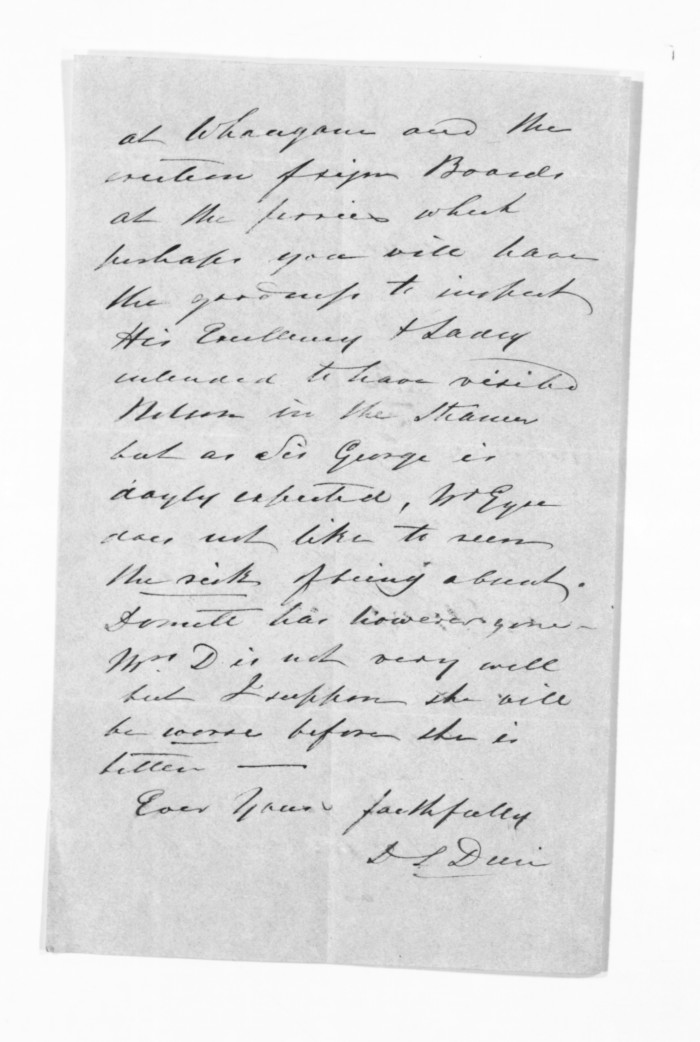 at Whanganui and the
erection of sign Boards
at the ferries which
perhaps you will have
the goodness to inspect
His Excellency & Lady
intended to have visited
Nelson in the Steamer
but as Sir George is
dayly expected, Mr Eyre
does not like to
the risk of being absent.
Domett has however gone –
Mrs D is not very well
but I suppose she will
be worse before she is
better —
Ever Yours faithfully